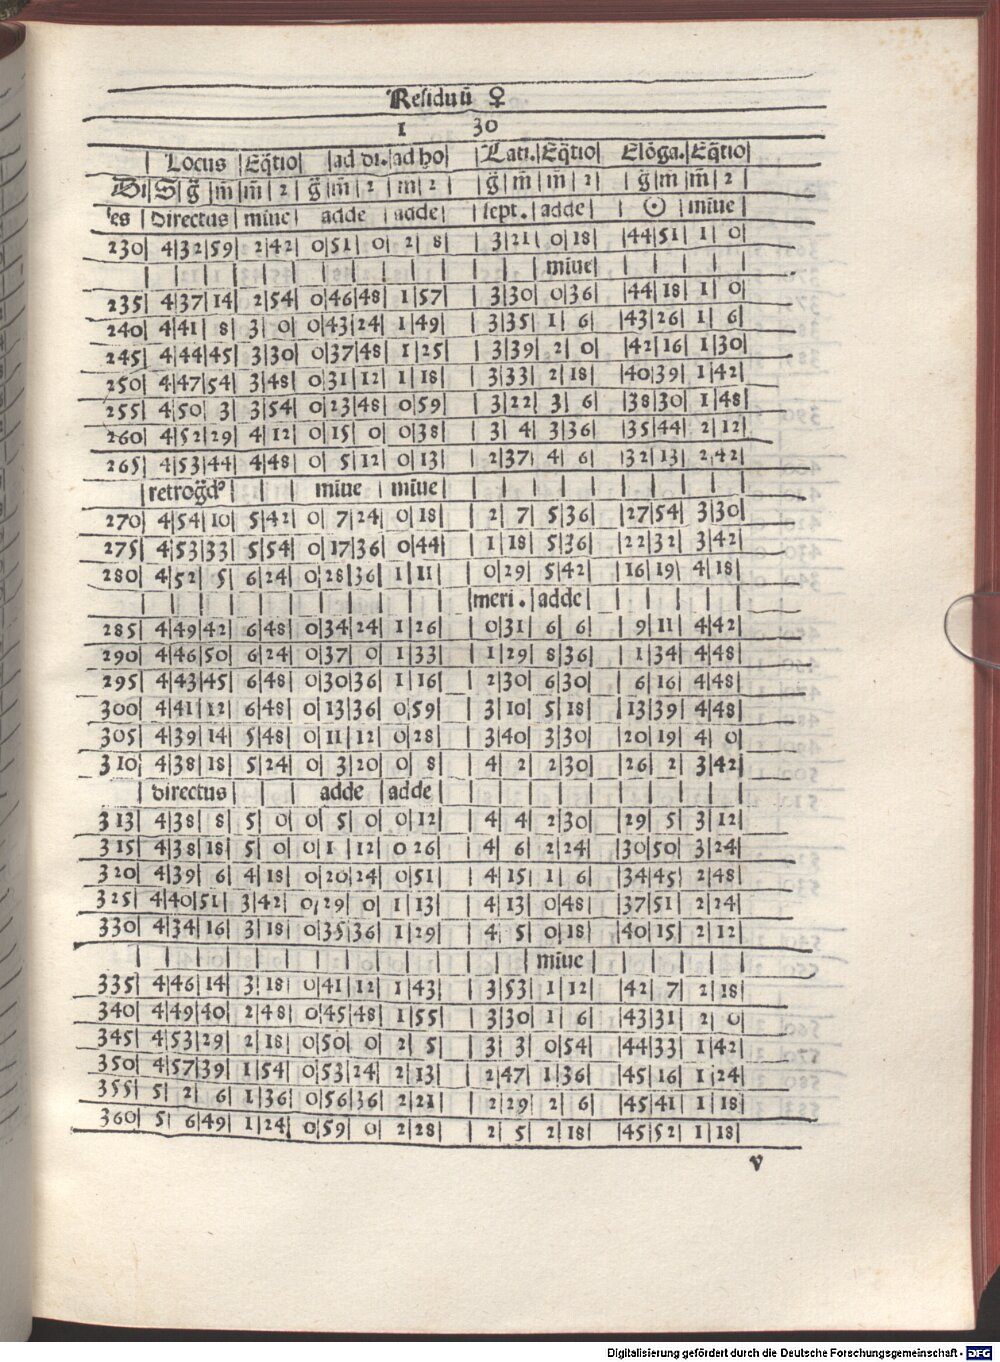 Residuũ ♀
1 30
| Locus |Eq̃tio| |ad di.|ad ho| |Lati.|Eq̃tio| Elõga.|Eq̃tio|
Di|S|g̃|m̃|m̃|2 g̃|m̃|2 m|2 |g̃|m̃|m̃|2| |g̃|m|m̃|2
es |directus| miue| adde |adde| |sept.|adde| | ☉ |miue|
230| 4|32|59| 2|42| 0|51| 0| 2| 8| | 3|21| 0|18| |44|51| 1| 0|
| | | | | | | | | | | miue| | | | |
235| 4|37|14| 2|54| 0|46|48| 1|57| | 3|30| 0|36| |44|18| 1| 0|
240| 4|41| 8| 3| 0| 0|43|24| 1|49| | 3|35| 1| 6| |43|26| 1| 6|
245| 4|44|45| 3|30| 0|37|48| 1|25| | 3|39| 2| 0| |42|16| 1|30|
250| 4|47|54| 3|48| 0|31|12| 1|18| | 3|33| 2|18| |40|39| 1|42|
255| 4|50| 3| 3|54| 0|23|48| 0|59| | 3|22| 3| 6| |38|30| 1|48|
260| 4|52|29| 4|12| 0|15| 0| 0|38| | 3| 4| 3|36| |35|44| 2|12|
265| 4|53|44| 4|48| 0| 5|12| 0|13| | 2|37| 4| 6| |32|13| 2|42|
|retrog̃dꝰ| | | miue | miue| | | | | | | | |
270| 4|54|10| 5|42| 0| 7|24| 0|18| | 2| 7| 5|36| |27|54| 3|30|
275| 4|53|33| 5|54| 0|17|36| 0|44| | 1|18| 5|36| |22|32| 3|42|
280| 4|52| 5| 6|24| 0|28|36| 1|11| | 0|29| 5|42| |16|19| 4|18|
| | | | | | | | | |meri.|adde| | | | |
285| 4|49|42| 6|48| 0|34|24| 1|26| | 0|31| 6| 6| | 9|11| 4|42|
290| 4|46|50| 6|24| 0|37| 0| 1|33| | 1|29| 8|36| | 1|34| 4|48|
295| 4|43|45| 6|48| 0|30|36| 1|16| | 2|30| 6|30| | 6|16| 4|48|
300| 4|41|12| 6|48| 0|13|36| 0|59| | 3|10| 5|18| |13|39| 4|48|
305| 4|39|14| 5|48| 0|11|12| 0|28| | 3|40| 3|30| |20|19| 4| 0|
310| 4|38|18| 5|24| 0| 3|20| 0| 8| | 4| 2| 2|30| |26| 2| 3|42|
|directus| | | adde |adde| | | | | | | | |
313| 4|38| 8| 5| 0| 0| 5| 0| 0|12| | 4| 4| 2|30| |29| 5| 3|12|
315| 4|38|18| 5| 0| 0|1 |12| 0 26| | 4| 6| 2|24| |30|50| 3|24|
320| 4|39| 6| 4|18| 0|20|24| 0|51| | 4|15| 1| 6| |34|45| 2|48|
325| 4|40|51| 3|42| 0|29| 0| 1|13| | 4|13| 0|48| |37|51| 2|24|
330| 4|34|16| 3|18| 0|35|36| 1|29| | 4| 5| 0|18| |40|15| 2|12|
| | | | | | | | | | | miue| | | | |
335| 4|46|14| 3|18| 0|41|12| 1|43| | 3|53| 1|12| |42| 7| 2|18|
340| 4|49|40| 2|48| 0|45|48| 1|55| | 3|30| 1| 6| |43|31| 2| 0|
345| 4|53|29| 2|18| 0|50| 0| 2| 5| | 3| 3| 0|54| |44|33| 1|42|
350| 4|57|39| 1|54| 0|53|24| 2|13| | 2|47| 1|36| |45|16| 1|24|
355| 5| 2| 6| 1|36| 0|56|36| 2|21| | 2|29| 2| 6| |45|41| 1|18|
360| 5| 6|49| 1|24| 0|59| 0| 2|28| | 2| 5| 2|18| |45|52| 1|18|
v
Digitalisierung gefördert durch die Deutsche Forschungsgemeinschaft - DFG